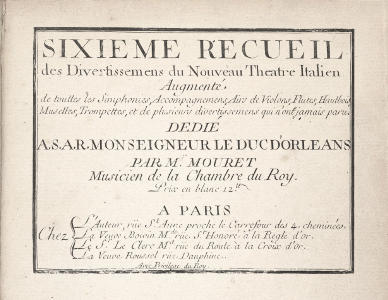 SIXIEME RECUEIL
des Divertissemens du Nouveau Theatre Italien
Augmenté
de touttes les Simphonies, Accompagnemens, Airs de Violons, Flutes, Hautbois,
Musettes, Trompettes, et de plusieurs divertissemens qui n'ont jamais paru.
DEDIE
A.S.A.R. MONSEIGNEUR LE DUC D'ORLEANS
PAR Mr. MOURET
Musicien de la Chambre du Roy.
Prix en blanc 12tt
A PARIS
Chez
L'Auteur, rüe Ste. Anne proche le Carrefour des 4. cheminées.
La Veuve Boivin Mde. rue St. Honoré à la Regle d'or.
Le S. Le Clerc Md. rue du Roule à la Croix d'or.
La Veuve Roussel rue Dauphine.
Avec Privilege du Roy.